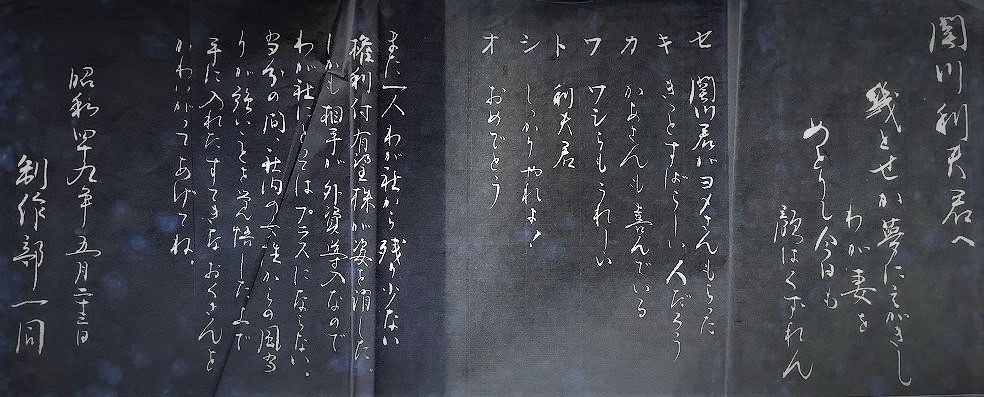 関川利夫君へ
幾とせか夢にえがきし
わが妻を
めとりし今日も
顔はくずれん
セ 関川君がヨメさんもらった
キ きっとすばらしい人だろう
カ かあさんも喜んでいる
ワ ワシらもうれしい
ト 利夫君
シ しっかりやれよ!
オ おめでとう
また一人わが社から残り少ない
権利付有望株が姿を消した。
しかも相手が外資導入なので
わが社にとってはプラスにならない。
当分の間、社内の女性からの風当
りが強いことを覚悟した上で
手に入れたすてきなおくさんを
かわいがってあげてね。
昭和四十九年五月二十三日
制作部一同